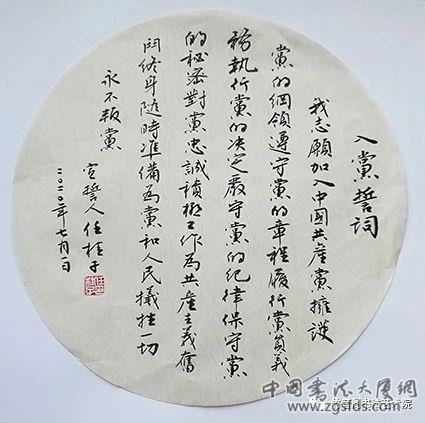 入黨誓詞
我志願加入中國共產黨擁護
黨的綱領遵守黨的章程履行黨員義
務執行黨的決定嚴守黨的紀律保守黨
的秘密對黨忠誠積極工作為共產主義奮
鬥終身隨時準備為黨和人民犧牲一切
永不叛黨
宣誓人任桂子
二〇二〇年七月一日
中国书法大厦網
www.zgsfds.com